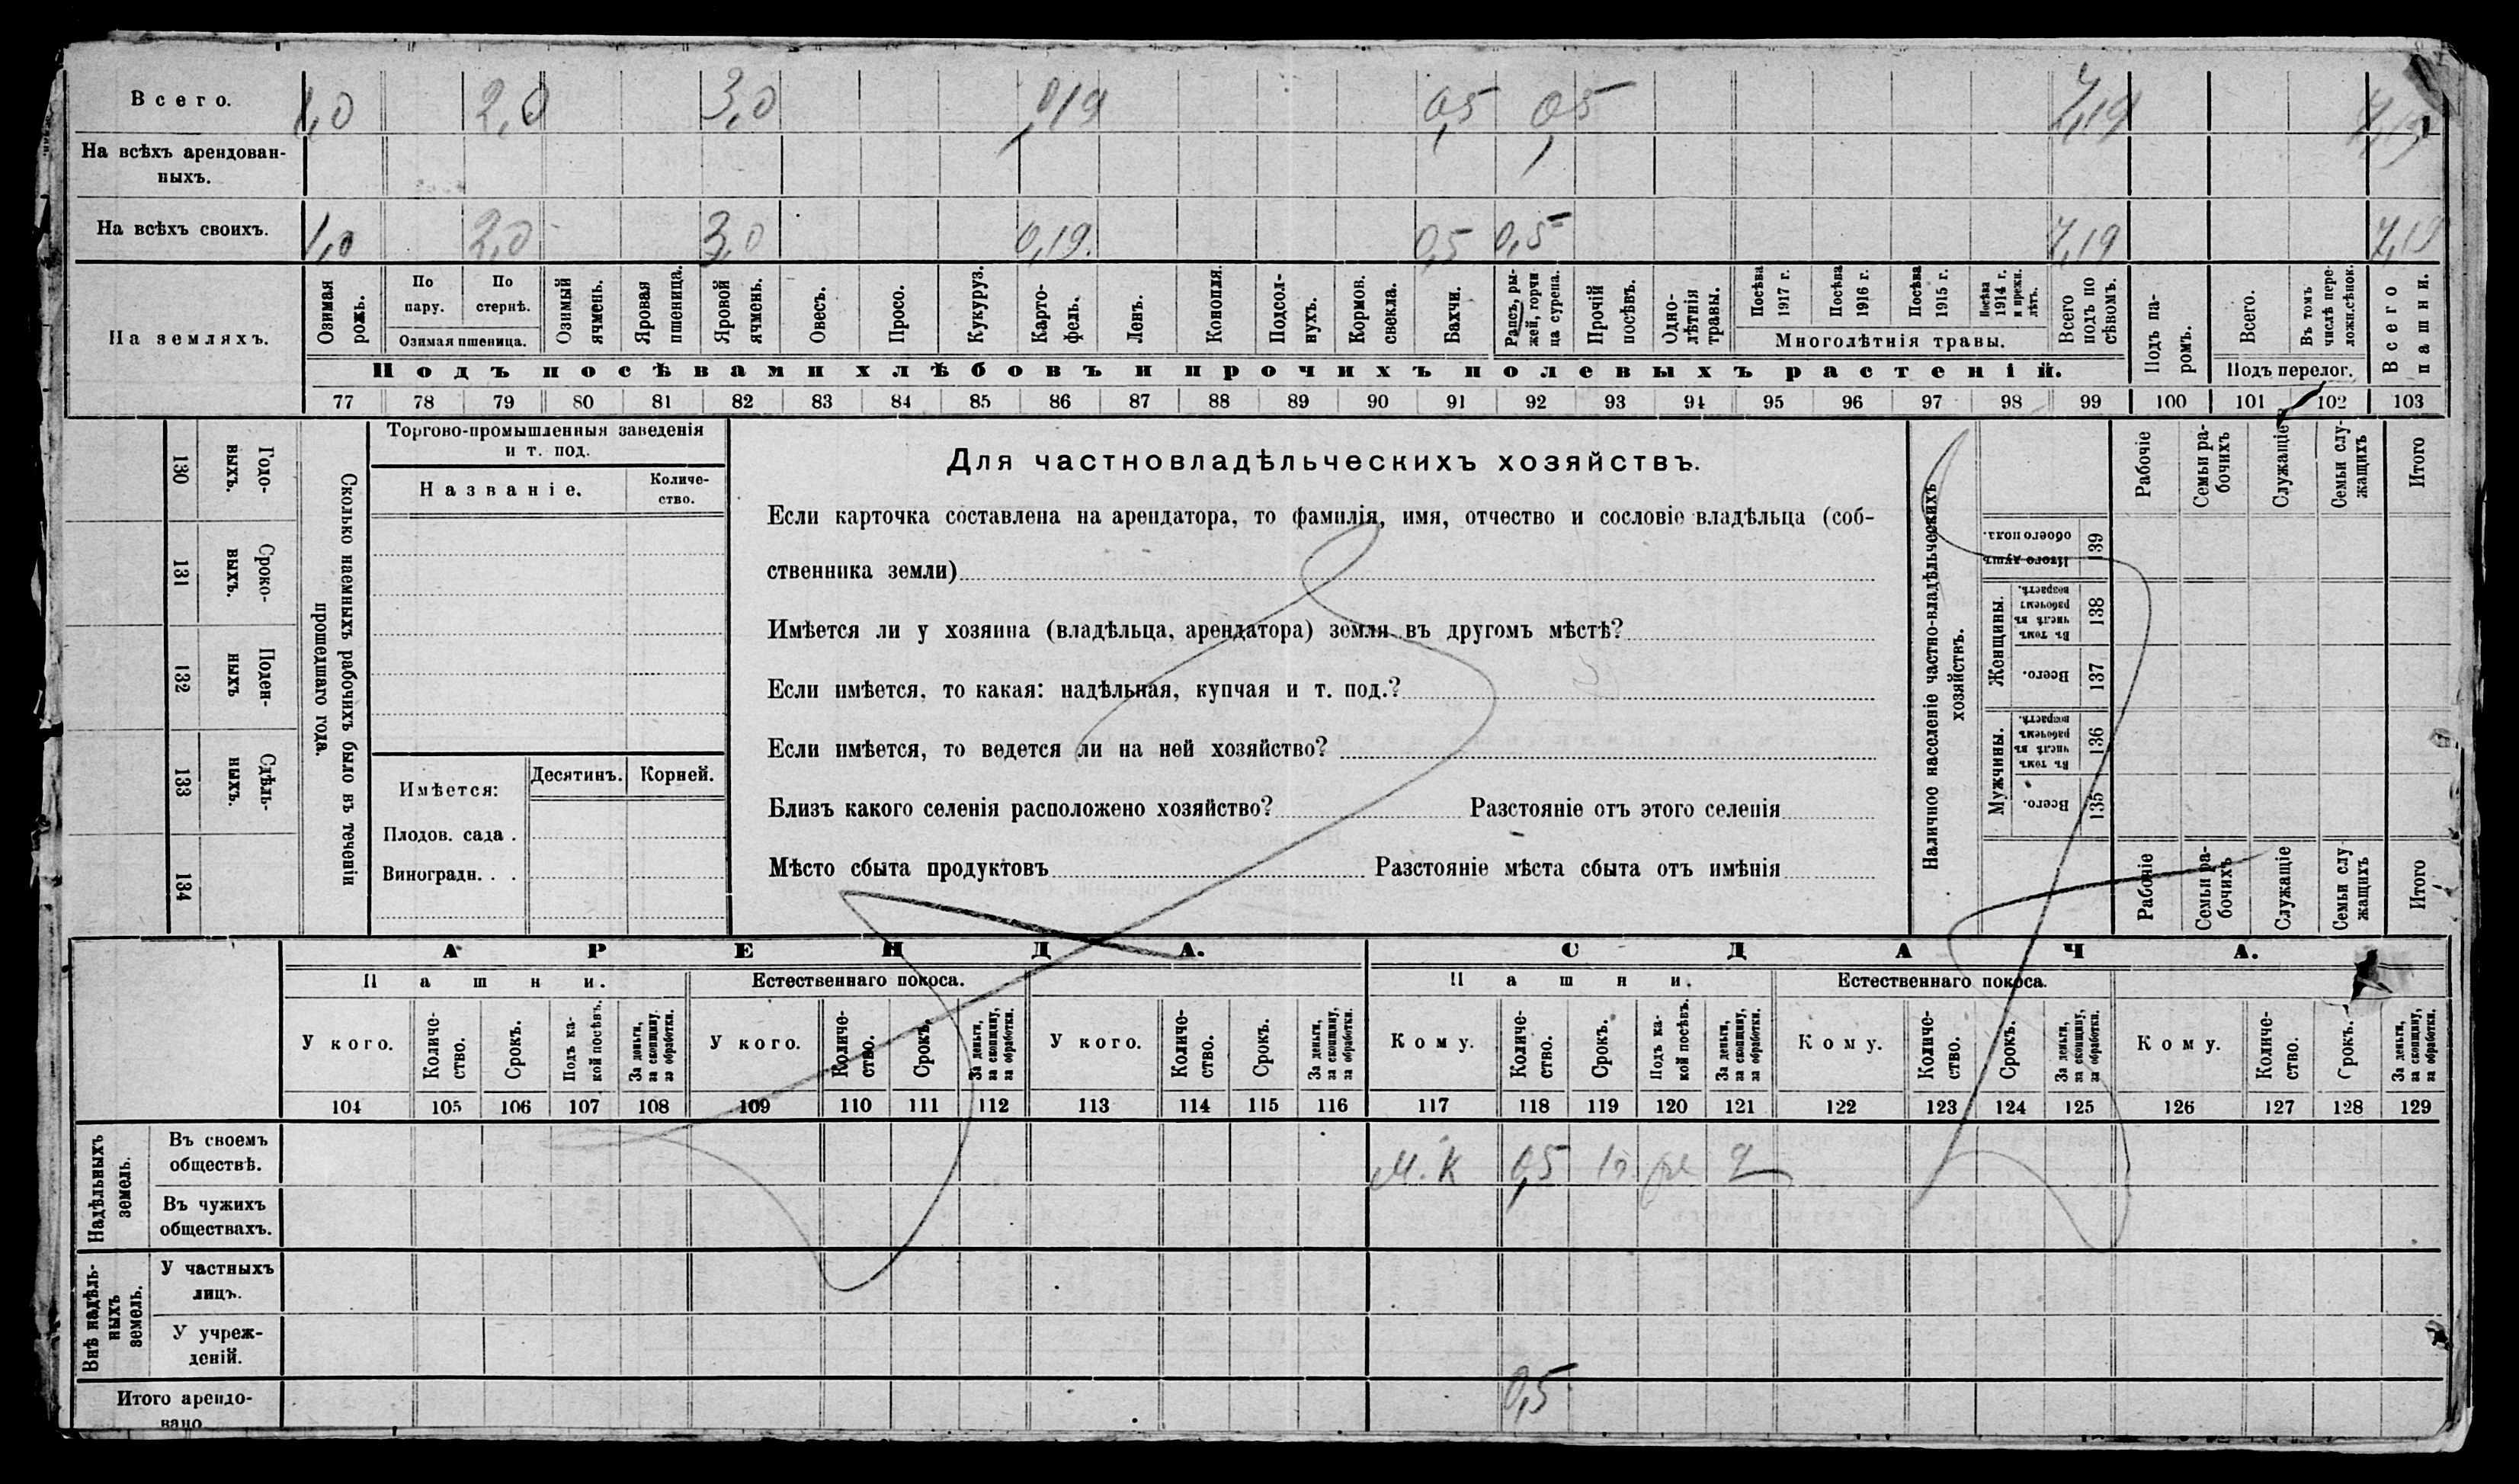 Всего. 1,0 2,0 3,0 0,19 0,5 0,5 7,19 7,19
На всѣхъ арендован-
ныхъ.
На всѣхъ своихъ. 1,0 2,0 3,0 0,19. 0,5 0,5 7,19 7,19
На земляхъ.
Озимая рожь.
По пару.
По стернѣ.
Озимая пшеница.
Озимый ячмень.
Яровая пшеница.
Яровой ячмень.
Овесъ.
Просо.
Кукуруз.
Карто-
фель.
Ленъ.
Конопля.
Подсол-
нухъ.
Кормов. свекла.
Бахчи.
Рапсъ, ры-
жей, горчи
ца сурепа.
Прочій посѣвъ.
Одно-
лѣтнія травы.
Посѣва 1917 г.
Посѣва 1916 г.
Посѣва 1915 г.
Посѣва 1914 г. и прежн. лѣтъ.
Многолѣтнія травы.
Всего подъ по
сѣвомъ.
Подъ па-
ромъ.
Всего.
Въ томъ числѣ пере-
ложн.сѣнок.
Подъ перелог.
Всего пашни.
Подъ посѣвами хлѣбовъ и прочихъ полевыхъ растеній.
77 78 79 80 81 82 83 84 85 86 87 88 89 90 91 92 93 94 95 96 97 98 99 100 101 102 103
130 Годо-
выхъ.
131 Сроко-
выхъ.
132 Поден-
ныхъ
133 Сдѣль-
ныхъ.
134
Сколько наемныхъ рабочихъ было въ теченіи
прошедшаго года.
Торгово-промышленныя заведенія
и т. под.
Названіе.
Количе-
ство.
Имѣется:
Десятинъ. Корней.
Плодов. сада .
Виноградн. . .
Для частновладѣльческихъ хозяйствъ.
Если карточка составлена на арендатора, то фамилія, имя, отчество и сословіе владѣльца (соб-
ственника земли)
Имѣется ли у хозяина (владѣльца, арендатора) земля въ другомъ мѣстѣ?
Если имѣется, то какая: надѣльная, купчая и т. под.?
Если имѣется, то ведется ли на ней хозяйство?
Близъ какого селенія расположено хозяйство? Разстояніе отъ этого селенія
Мѣсто сбыта продуктовъ Разстояніе мѣста сбыта отъ имѣнія
Наличное населеніе частно-владѣльческихъ
хозяйствъ.
Рабочіе
Семьи ра-
бочихъ
Служащіе
Семьи слу-
жащихъ
Итого
Итого душъ обоего пола. 139
Женщины.
Въ томъ числѣ въ рабочемъ возрастѣ. 138
Всего. 137
Мужчины.
Въ томъ числѣ въ рабочемъ возрастѣ. 136
Всего. 135
Рабочіе
Семьи ра-
бочихъ
Служащіе
Семьи слу
жащихъ
Итого
АРЕНДА. СДАЧА.
Пашни. Естественнаго покоса. Пашни. Естественнаго покоса.
У кого.
Количе-
ство.
Срокъ.
Подъ ка-
кой посѣвъ.
За деньги, за скопщину, за обработки.
У кого.
Количе-
ство.
Срокъ.
За деньги, за скопщину, за обработки.
У кого.
Количе-
ство.
Срокъ.
За деньги, за скопщину, за обработки.
Кому.
Количе-
ство.
Срокъ.
Подъ ка-
кой посѣвъ.
За деньги, за скопщину, за обработки.
Кому.
Количе-
ство.
Срокъ.
За деньги, за скопщину, за обработки.
Кому.
Количе-
ство.
Срокъ.
За деньги, за скопщину, за обработки.
104 105 106 107 108 109 110 111 112 113 114 115 116 117 118 119 120 121 122 123 124 125 126 127 128 129
Надѣльныхъ земель.
Въ своемъ
обществѣ. М. К 0,5
Въ чужихъ
обществахъ.
Внѣ надѣль-
ныхъ земель.
У частныхъ
лицъ.
У учреж-
деній.
Итого арендо-
вано 0,5